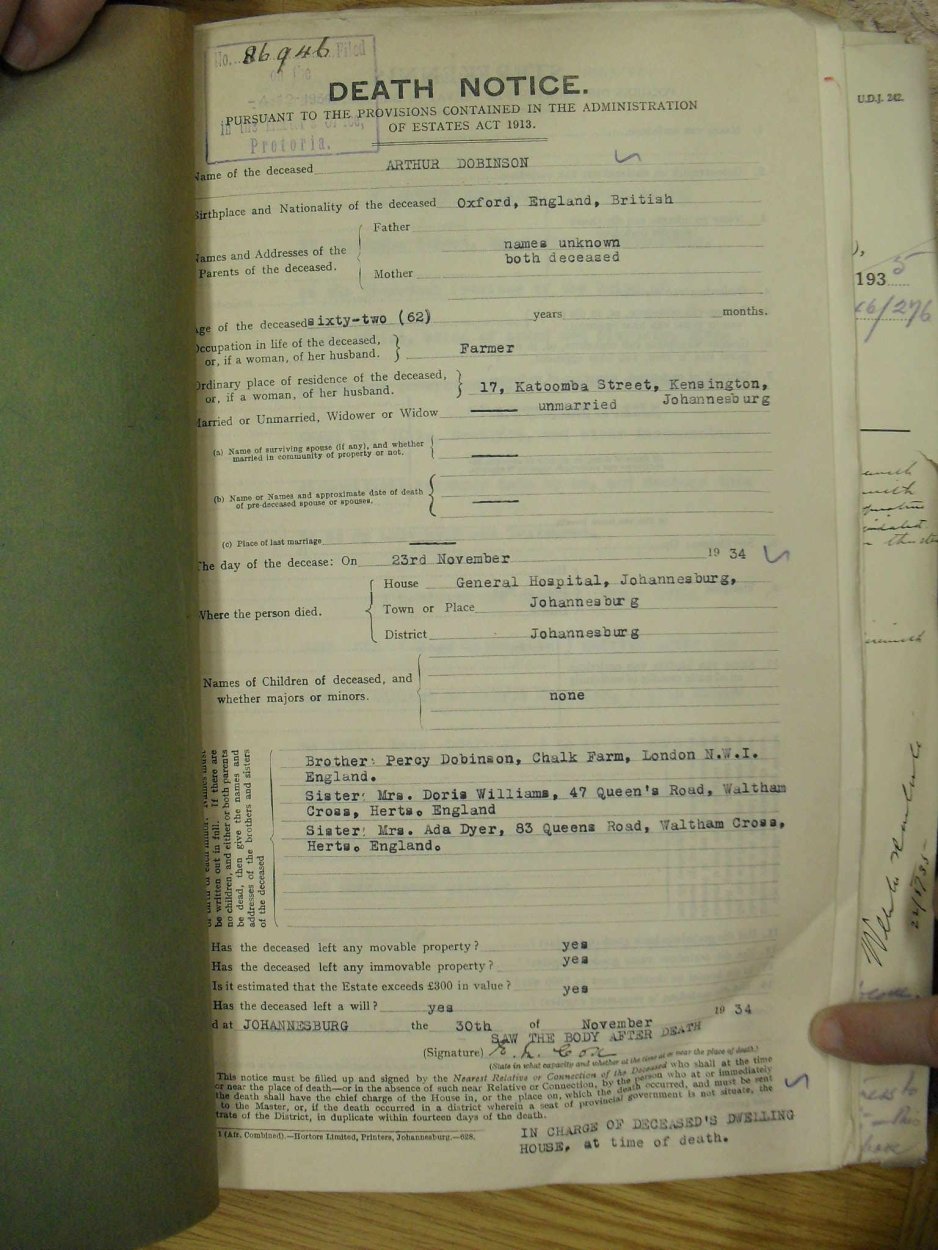 No. 86946 Filed
on the
in the Master's Office,
Pretoria.
DEATH NOTICE.
PURSUANT TO THE PROVISIONS CONTAINED IN THE ADMINISTRATION
OF ESTATES ACT 1913.
Name of the deceased ARTHUR DOBINSON
Birthplace and Nationality of the deceased Oxford, England, British
Names and Addresses of the
Parents of the deceased.
Father
names unknown
both deceased
Mother
Age of the deceased sixty-two (62) years months.
Occupation in life of the deceased,
or, if a woman, of her husband.
Farmer
Ordinary place of residence of the deceased,
or, if a woman, of her husband.
17, Katoomba Street, Kensington,
Johannesburg
Married or Unmarried, Widower or Widow unmarried
(a) Name of surviving spouse (if any), and whether
married in community of property or not.
(b) Name or Names and approximate date of death
of pre-deceased spouse or spouses.
(c) Place of last marriage
The day of the decease: On 23rd November 19 34
Where the person died.
House General Hospital, Johannesburg,
Town or Place Johannesburg
District Johannesburg
Names of Children of deceased, and
whether majors or minors.
none
be written out in full. If there are
no children, and either or both parents
be dead, then give the names and
addresses of the brothers and sisters
of the deceased
Brother: Percy Dobinson, Chalk Farm, London N.W.I.
England.
Sister: Mrs. Doris Williams, 47 Queen's Road, Waltham
Cross, Herts. England
Sister: Mrs. Ada Dyer, 83 Queens Road, Waltham Cross,
Herts. England.
Has the deceased left any movable property? yes
Has the deceased left any immovable property? yes
Is it estimated that the Estate exceeds £300 in value? yes
Has the deceased left a will? yes
d at JOHANNESBURG the 30th of November 19 34
SAW THE BODY AFTER DEATH
(Signature) E. L. Cox
(State in what capacity and whether at the time at or near the place of death.)
This notice must be filled up and signed by the Nearest Relative or Connection of the Deceased who shall at the time
or near the place of death—or in the absence of such near Relative or Connection, by the person who at or immediately
the death shall have the chief charge of the House in, or the place on, which the death occurred, and must be sent
to the Master, or, if the death occurred in a district wherein a seat of provincial government is not situate, the
trate of the District, in duplicate within fourteen days of the death.
1 (Afr. Combined).—Hortors Limited, Printers, Johannesburg.—628.
IN CHARGE OF DECEASED'S DWELLING
HOUSE, at time of death.
U.D.J. 242.
193 5